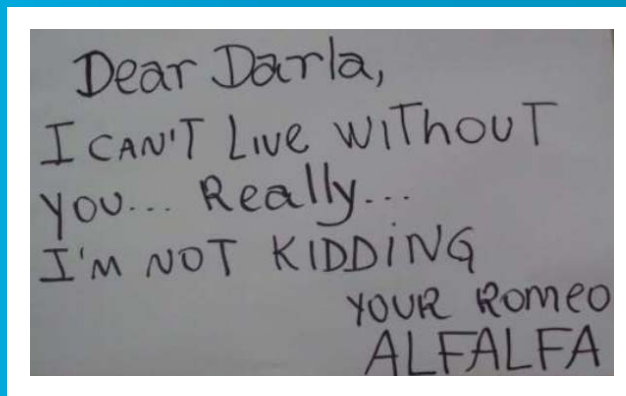 Dear Darla,
I CAN'T LIVE WITHOUT
YOU... Really...
I'M NOT KIDDING
YOUR ROMEO
ALFALFA